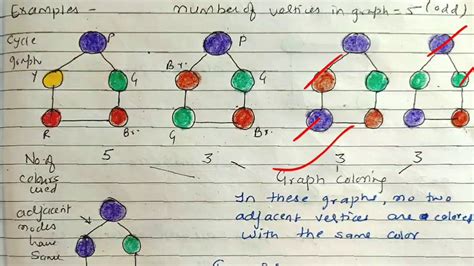 Examples - Number of vertices in graph = 5 (odd)
Cycle graph
P
Y G
R Br.
P
Br. G
G Br.
No. of colours used
5 3 3 3
Graph coloring
adjacent nodes have same
In these graphs, no two
adjacent vertices are colored
with the same color